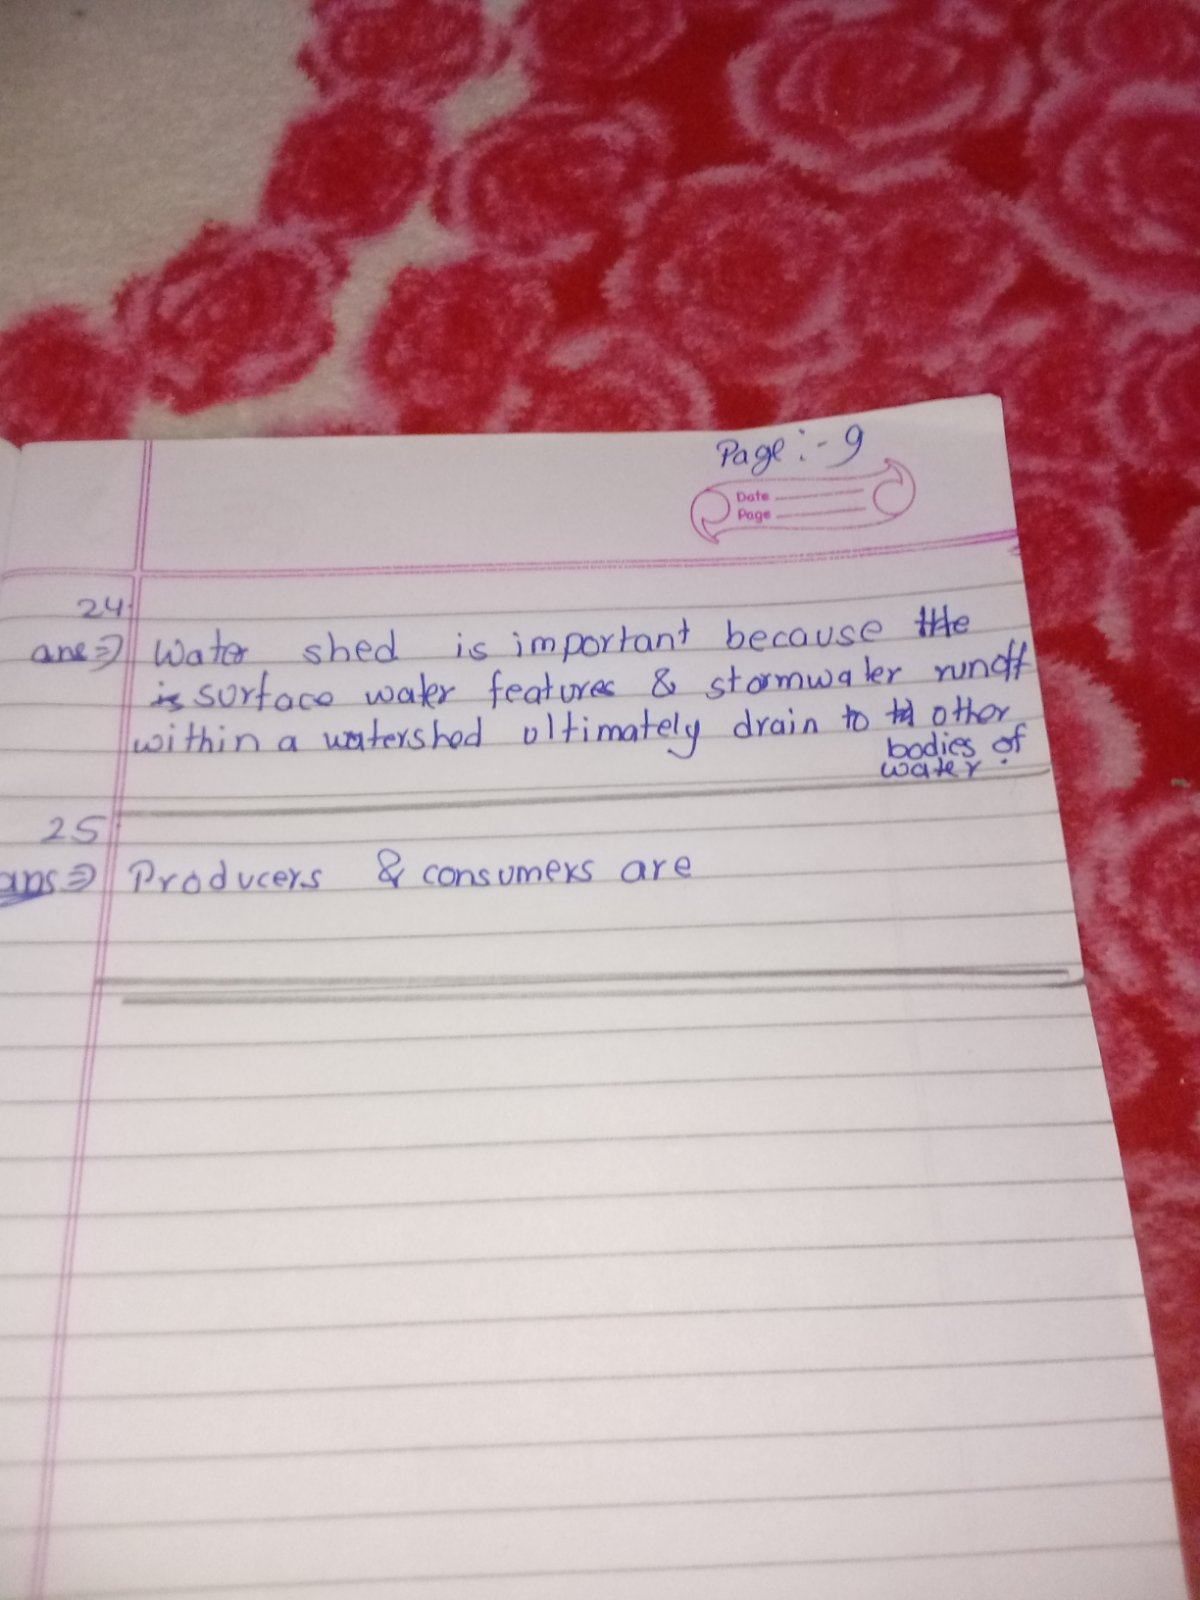 Page :- 9
Date
Page
24
ans⇒ Water shed is important because the
surface water features & stormwater runoff
within a watershed ultimately drain to other
bodies of
water.
25
ans⇒ Producers & consumers are